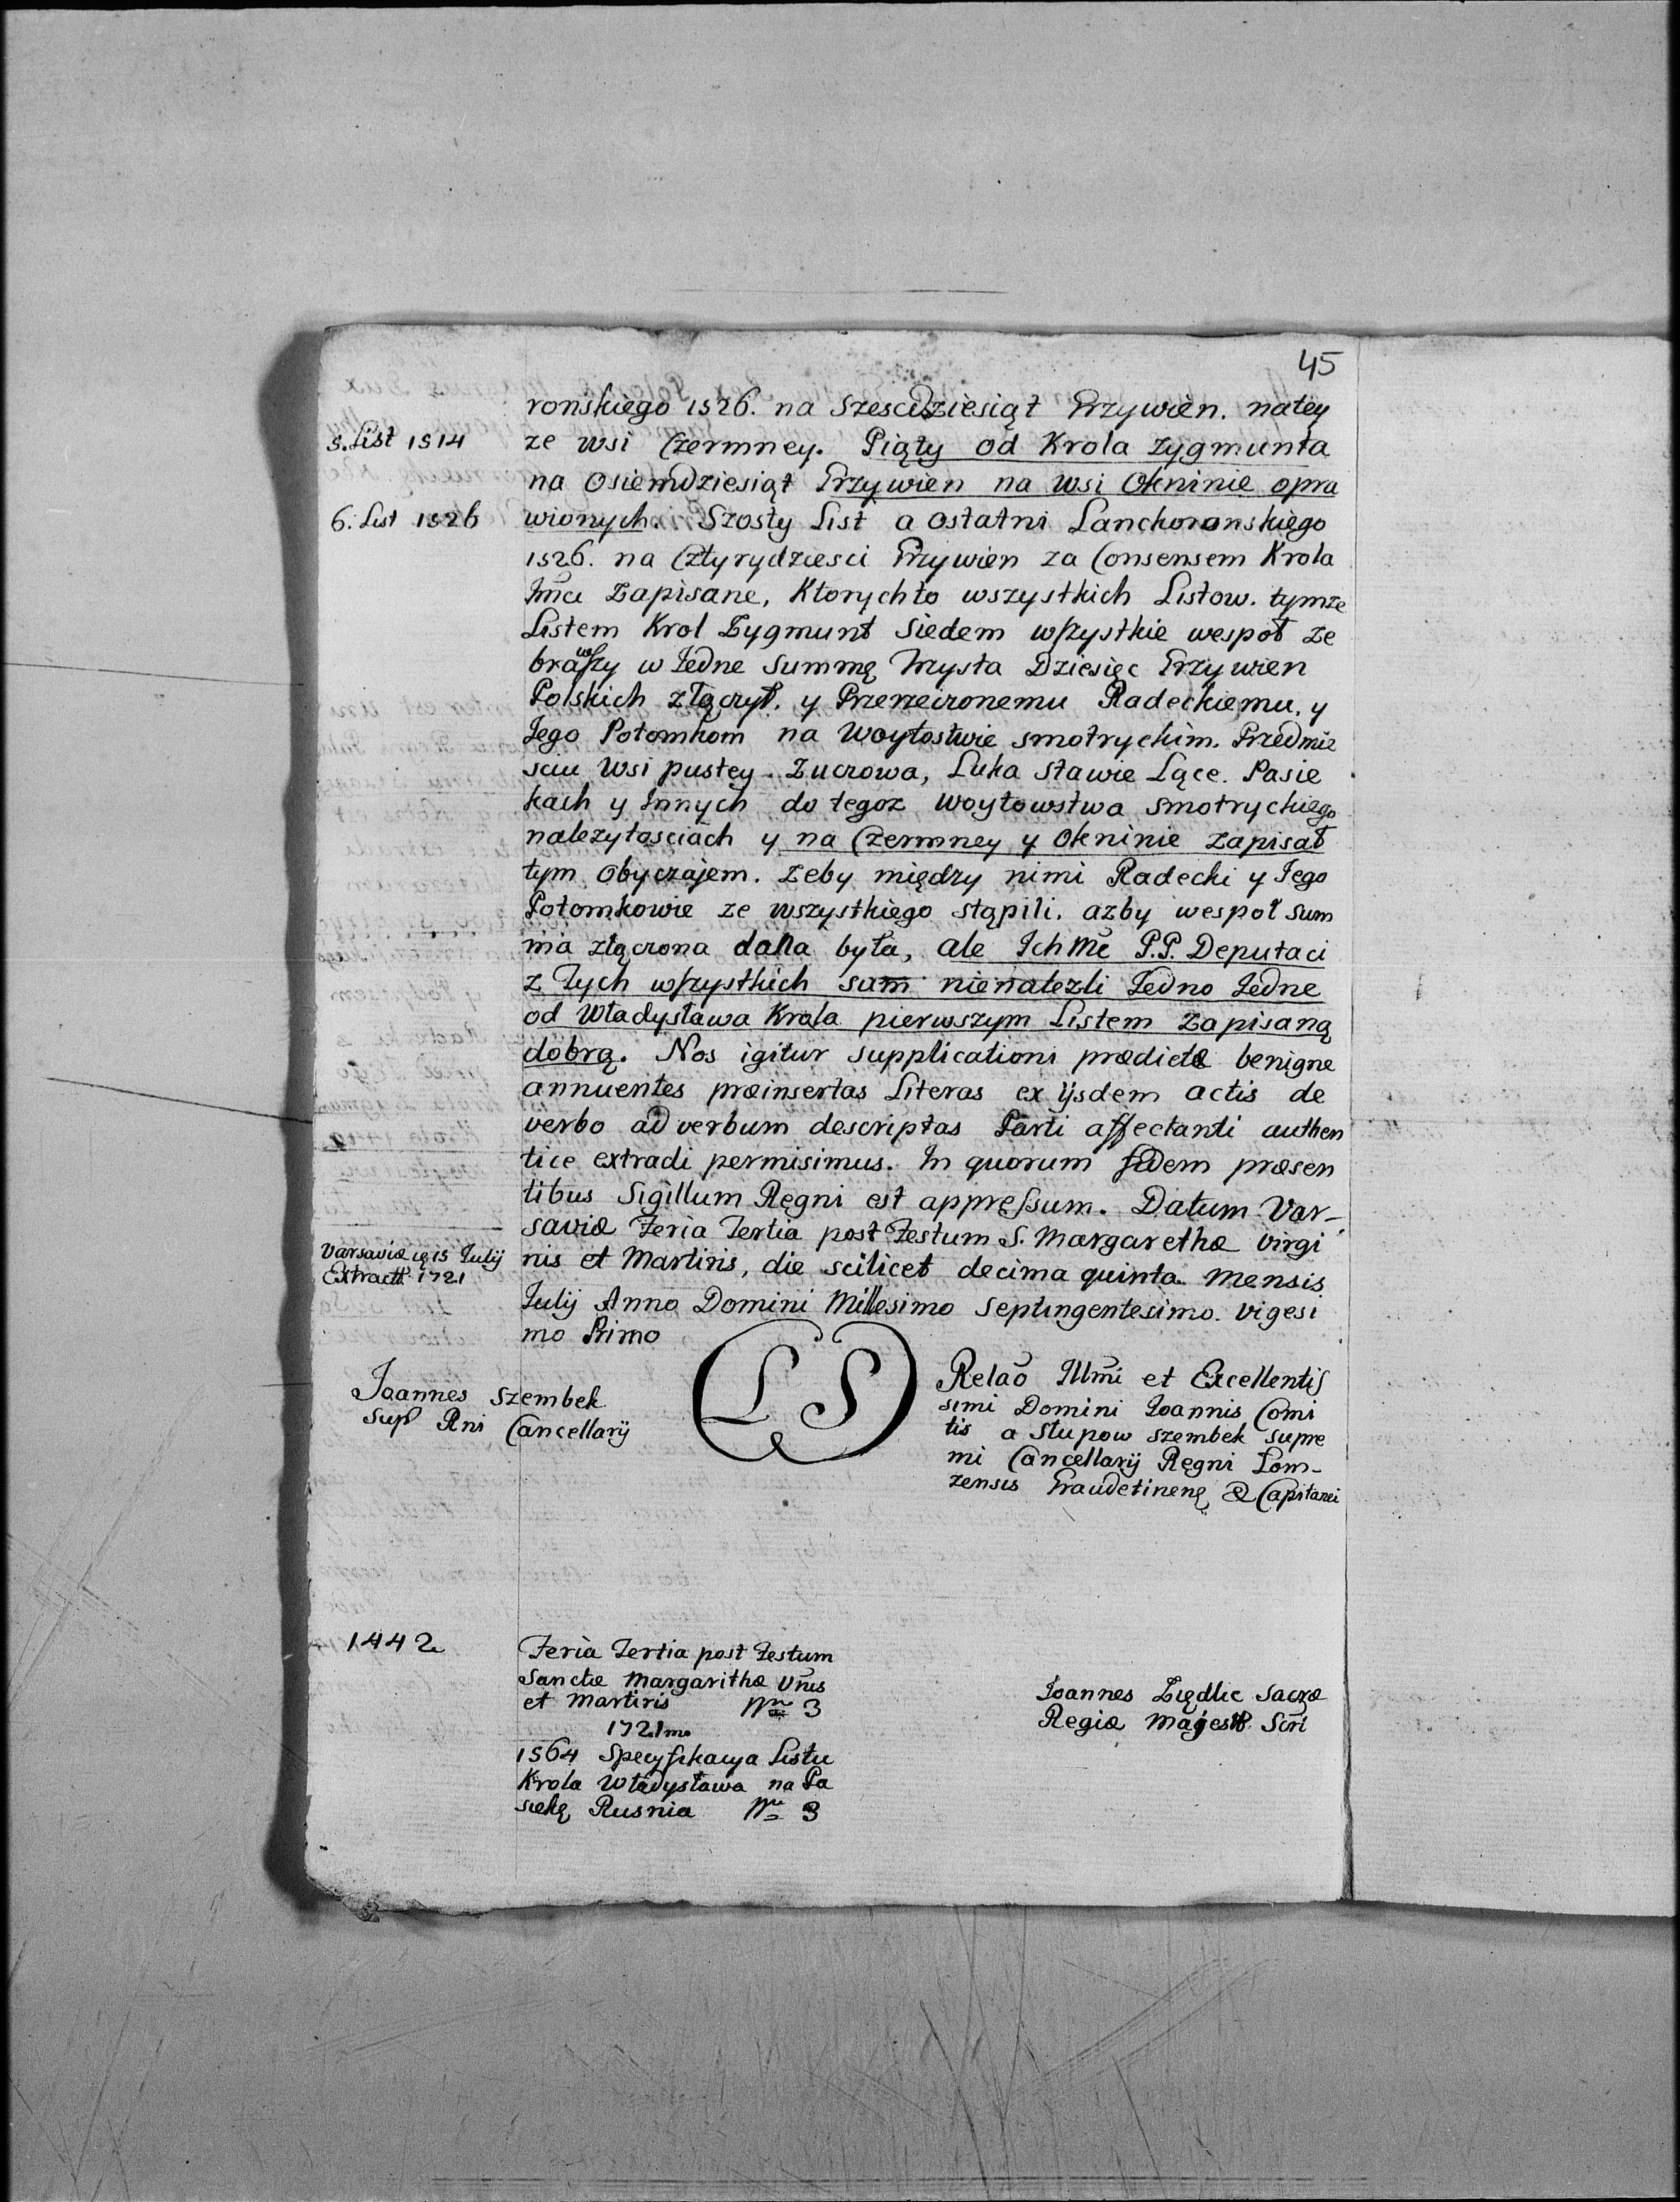 45
ronskiego 1526. na Szescdziesiąt Grzywien. natey
5. List 1514
ze wsi Czermney. Piąty od Krola Zygmunta
na osiemdziesiąt Grzywien na wsi Okninie opra
6. List 1526
wionych. Szosty List a ostatni Lanckoronskiego
1526. na Cztyrydziesci Grzywien za Consensem Krola
Jmci Zapisane, Ktorychto wszystkich Listow. tymze
Listem Krol Zygmunt Siedem wszystkie wespoł ze
brawszy w Jedne Summę Trzysta Dziesięc Grzywien
Polskich złączył. y Przerzeczonemu Radeckiemu. y
Jego Potomkom na Woytostwie smotryckim. Przedmie
sciu wsi pustey. Zuczowa, Luka stawie Łące. Pasie
kach y Innych do tegoz woytowstwa smotryckiego
nalezytosciach y na Czermney y Okninie zapisał
tym obyczajem. zeby między nimi Radecki y Jego
Potomkowie ze wszystkiego stąpili. azby wespoł sum
ma złączona dana była, ale Ichmc P.P. Deputaci
z Tych wszystkich sam nienalezli Jedno Jedne
od Władysława Krola pierwszym Listem zapisaną
dobrą. Nos igitur supplicationi prædictæ benigne
annuentes præinsertas Literas ex ijsdem actis de
verbo ad verbum descriptas Parti affectanti authen
tice extradi permisimus. In quorum fidem præsen
tibus Sigillum Regni est appręssum. Datum Var-
saviæ Feria Tertia post Festum S. Margarethæ Virgi
Varsaviæ 15 Julij
Extractt 1721
nis et Martiris, die scilicet decima quinta mensis
Julij Anno Domini Millesimo Septingentesimo. vigesi
mo Primo
L S
Joannes Szembek
Sup Rni Cancellarij
Relaō Illmi et Excellentis
simi Domini Joannis Comi
tis a Słupow szembek supre
mi Cancellarij Regni Lom-
zensis Graudetinenę & Capitanei
1442
Feria Tertia post Festum
Sanctæ Margarithæ Vnis
et Martiris Nro 3
1721mo
1564 Specyfikacya Listu
Krola Władysława na Pa
siekę Rusnia Nro 3
Joannes Ziędlic Sacræ
Regiæ Majestt. Scri